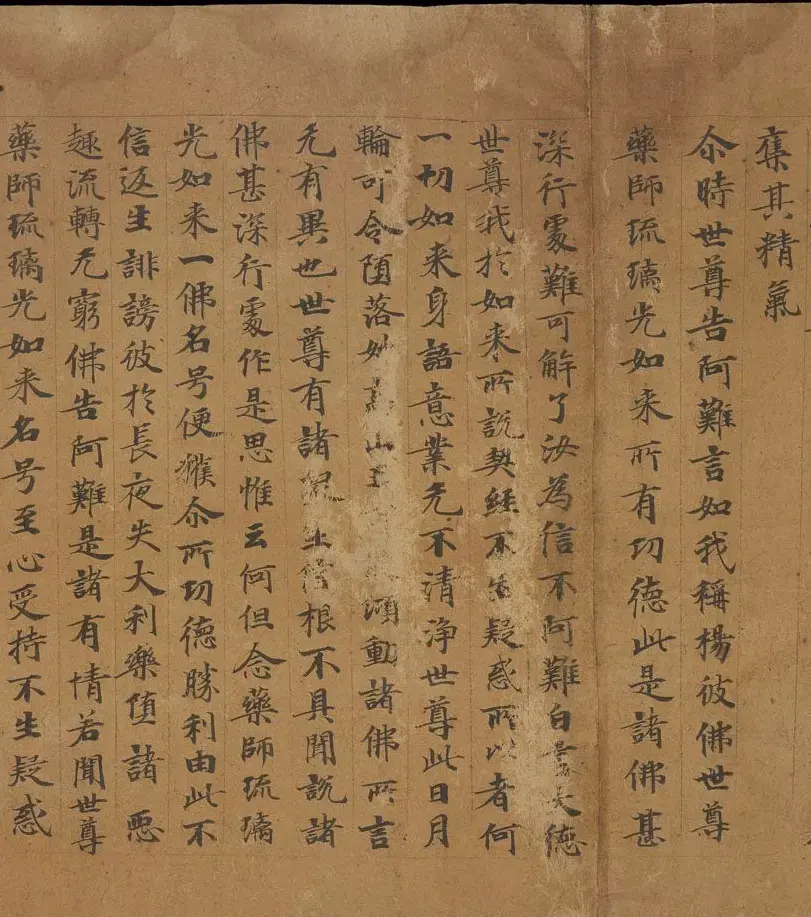 奪其精氣
尒時世尊告阿難言如我稱楊彼佛世尊
藥師琉璃光如来所有功德此是諸佛甚
深行處難可解了汝為信不阿難白言大德
世尊我於如来所說契經不生疑惑所以者何
一切如来身語意業无不清淨世尊此日月
輪可令墮落妙高山傾動諸佛所言
无有異也世尊有諸衆生信根不具聞說諸
佛甚深行處作是思惟云何但念藥師琉璃
光如来一佛名号便獲尒所功德勝利由此不
信返生誹謗彼於長夜失大利樂墮諸惡
趣流轉无窮佛告阿難是諸有情若聞世尊
藥師琉璃光如来名号至心受持不生疑惑